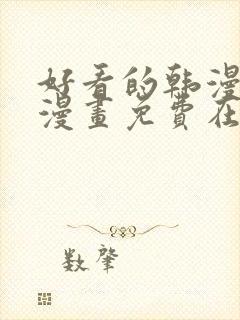 好看的韩漫
漫畫免費在
数肇